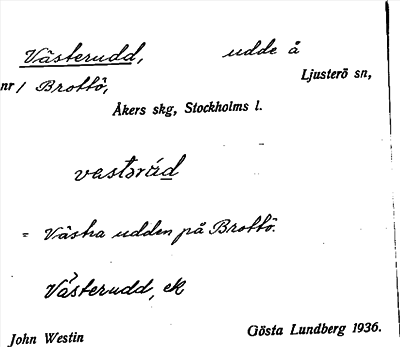 Västerudd, udde å
nr / Brottö, Ljusterö sn,
Åkers skg, Stockholms l.
= Västra udden på Brottö.
Västerudd, ek
John Westin Gösta Lundberg 1936.